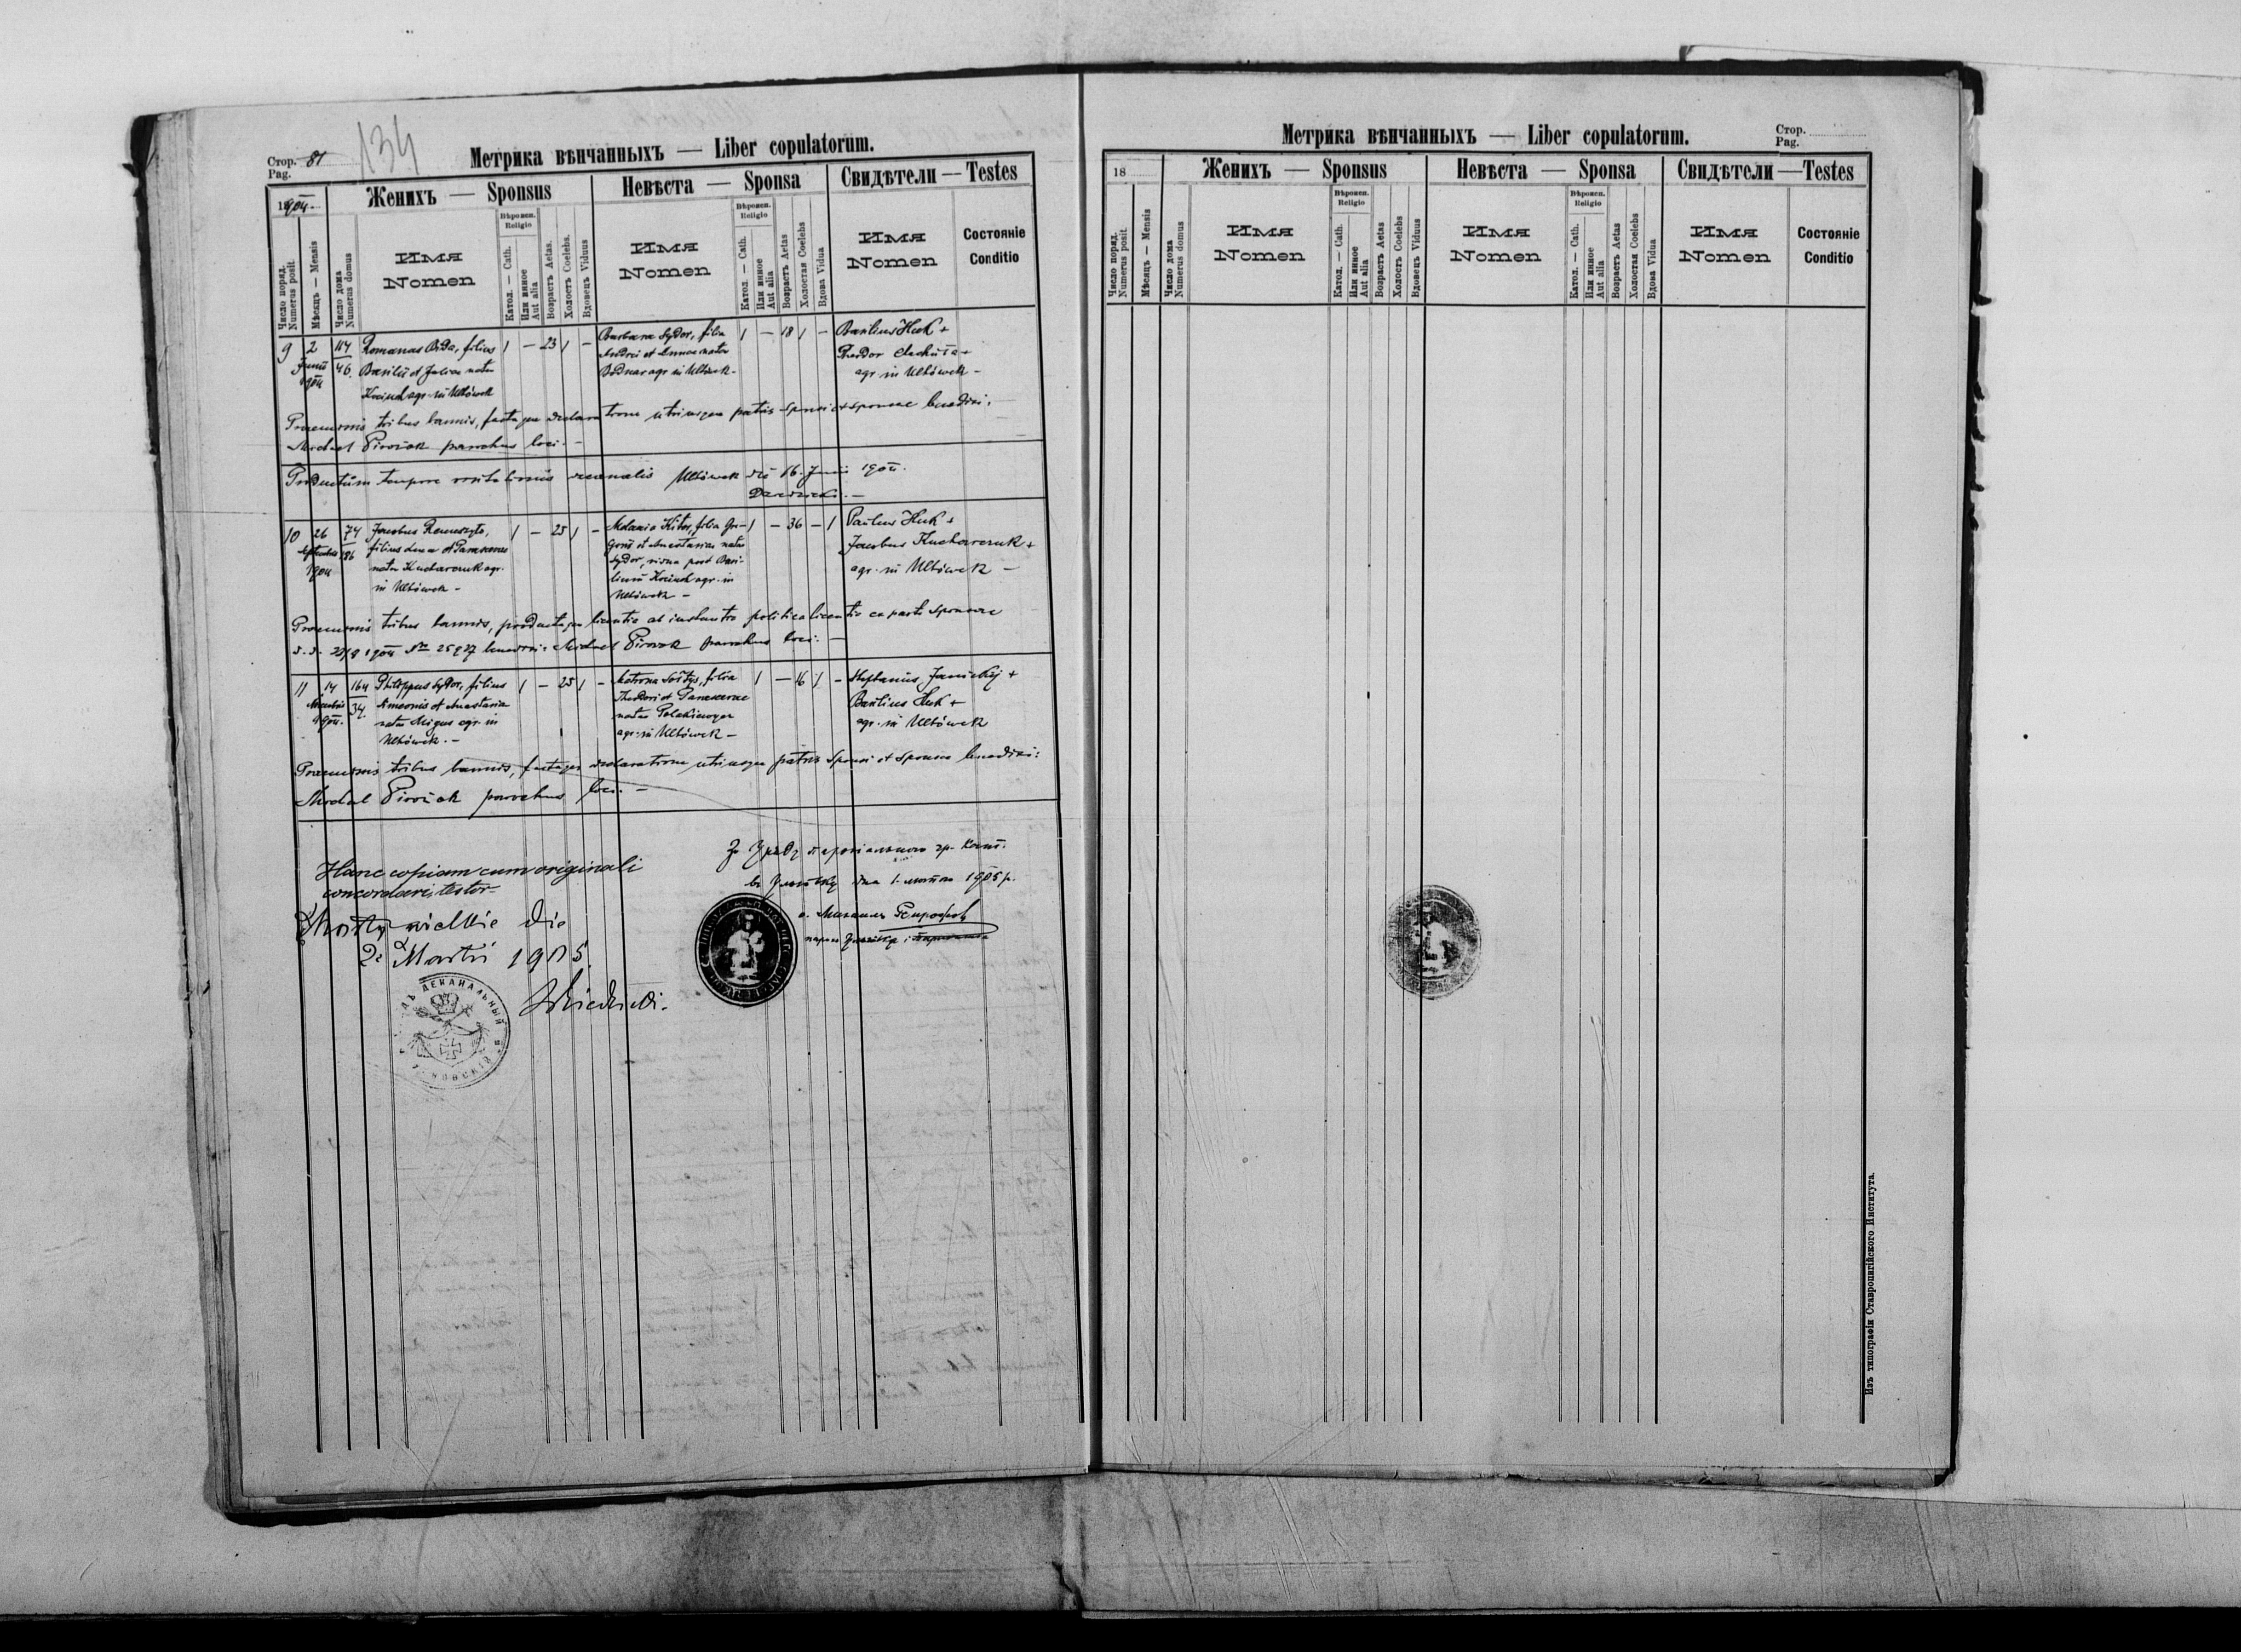 134
Стор. 81
Pag.
Метрика вѣнчанныхъ — Liber copulatorum.
1904.
Женихъ — Sponsus
Невѣста — Sponsa
Свидѣтели — Testes
Число поряд.
Numerus posit.
Мѣсяцъ — Mensis
Число дома
Numerus domus
Имя
Nomen
Вѣроисп.
Religio
Катол. — Cath.
Или инное
Aut alia
Возрастъ Aetas.
Холостъ Coelebs.
Вдовецъ Viduus
Имя
Nomen
Вѣроисп.
Religio
Катол. — Cath.
Или инное
Aut alia
Возрастъ Aetas
Холостая Coelebs
Вдова Vidua
Имя
Nomen
Состояніе
Conditio
9 2 Junii 1904 114 46.
Romanus Bida, filius
Basilii et Juliae natae
agr. in Ulhówek
1 — 23 1 —
Barbara Sydor, filia
Andrei et Annae natae
Bodnar agr. in Ulhówek -
1 — 18 1 —
Basilius Huk +
Theodor +
agr. in Ulhówek -
Praemissis tribus bannis, factaque declaratione utriusque patris sponsi et sponsae benedixi:
Michael parochus loci. -
Productum tempore visitationis decanalis Ulhówek die 16. Junii 1904.
10 26 Septembris 1904 74 186
Jacobus
filius Lucae et Parascevae
natae Kucharczuk agr.
in Ulhówek -
1 — 25 1 —
Melania Kitor, filia Gre-
gorii et Anastasiae natae
Sydor, vidua post Basi-
lium agr. in
Ulhówek -
1 — 36 — 1
Paulus Huk +
Jacobus Kucharczuk +
agr. in Ulhówek -
Praemissis tribus bannis, productaque licentia ab instantia politica ex parte sponsae
d. d. 23/8 1904 No 25927 benedixi: Michael parochus loci. -
11 14 Novembris 1904. 164 34.
Philippus Sydor, filius
Simeonis et Anastasiae
natae Migus agr. in
Ulhówek. -
1 — 25 1 —
Matrona Sołtys, filia
Theodori et Parascevae
natae
agr. in Ulhówek -
1 — 16 1 —
Stephanus Janickij +
Basilius Huk +
agr. in Ulhówek
Praemissis tribus bannis, factaque declaratione utriusque patris sponsi et sponsae benedixi:
Michael parochus loci. -
Hanc copiam cum originali
concordare testor
die
2 Martii 1905.
1905 р.
о. Михаилъ
ДЕКАНАЛЬНЫЙ
Метрика вѣнчанныхъ — Liber copulatorum.
Стор.
Pag.
18
Женихъ — Sponsus
Невѣста — Sponsa
Свидѣтели — Testes
Число поряд.
Numerus posit.
Мѣсяцъ — Mensis
Число дома
Numerus domus
Имя
Nomen
Вѣроисп.
Religio
Катол. — Cath.
Или инное
Aut alia
Возрастъ Aetas
Холостъ Coelebs
Вдовецъ Viduus
Имя
Nomen
Вѣроисп.
Religio
Катол. — Cath.
Или инное
Aut alia
Возрастъ Aetas
Холостая Coelebs
Вдова Vidua
Имя
Nomen
Состояніе
Conditio
Изъ типографіи Ставропигійского Института.